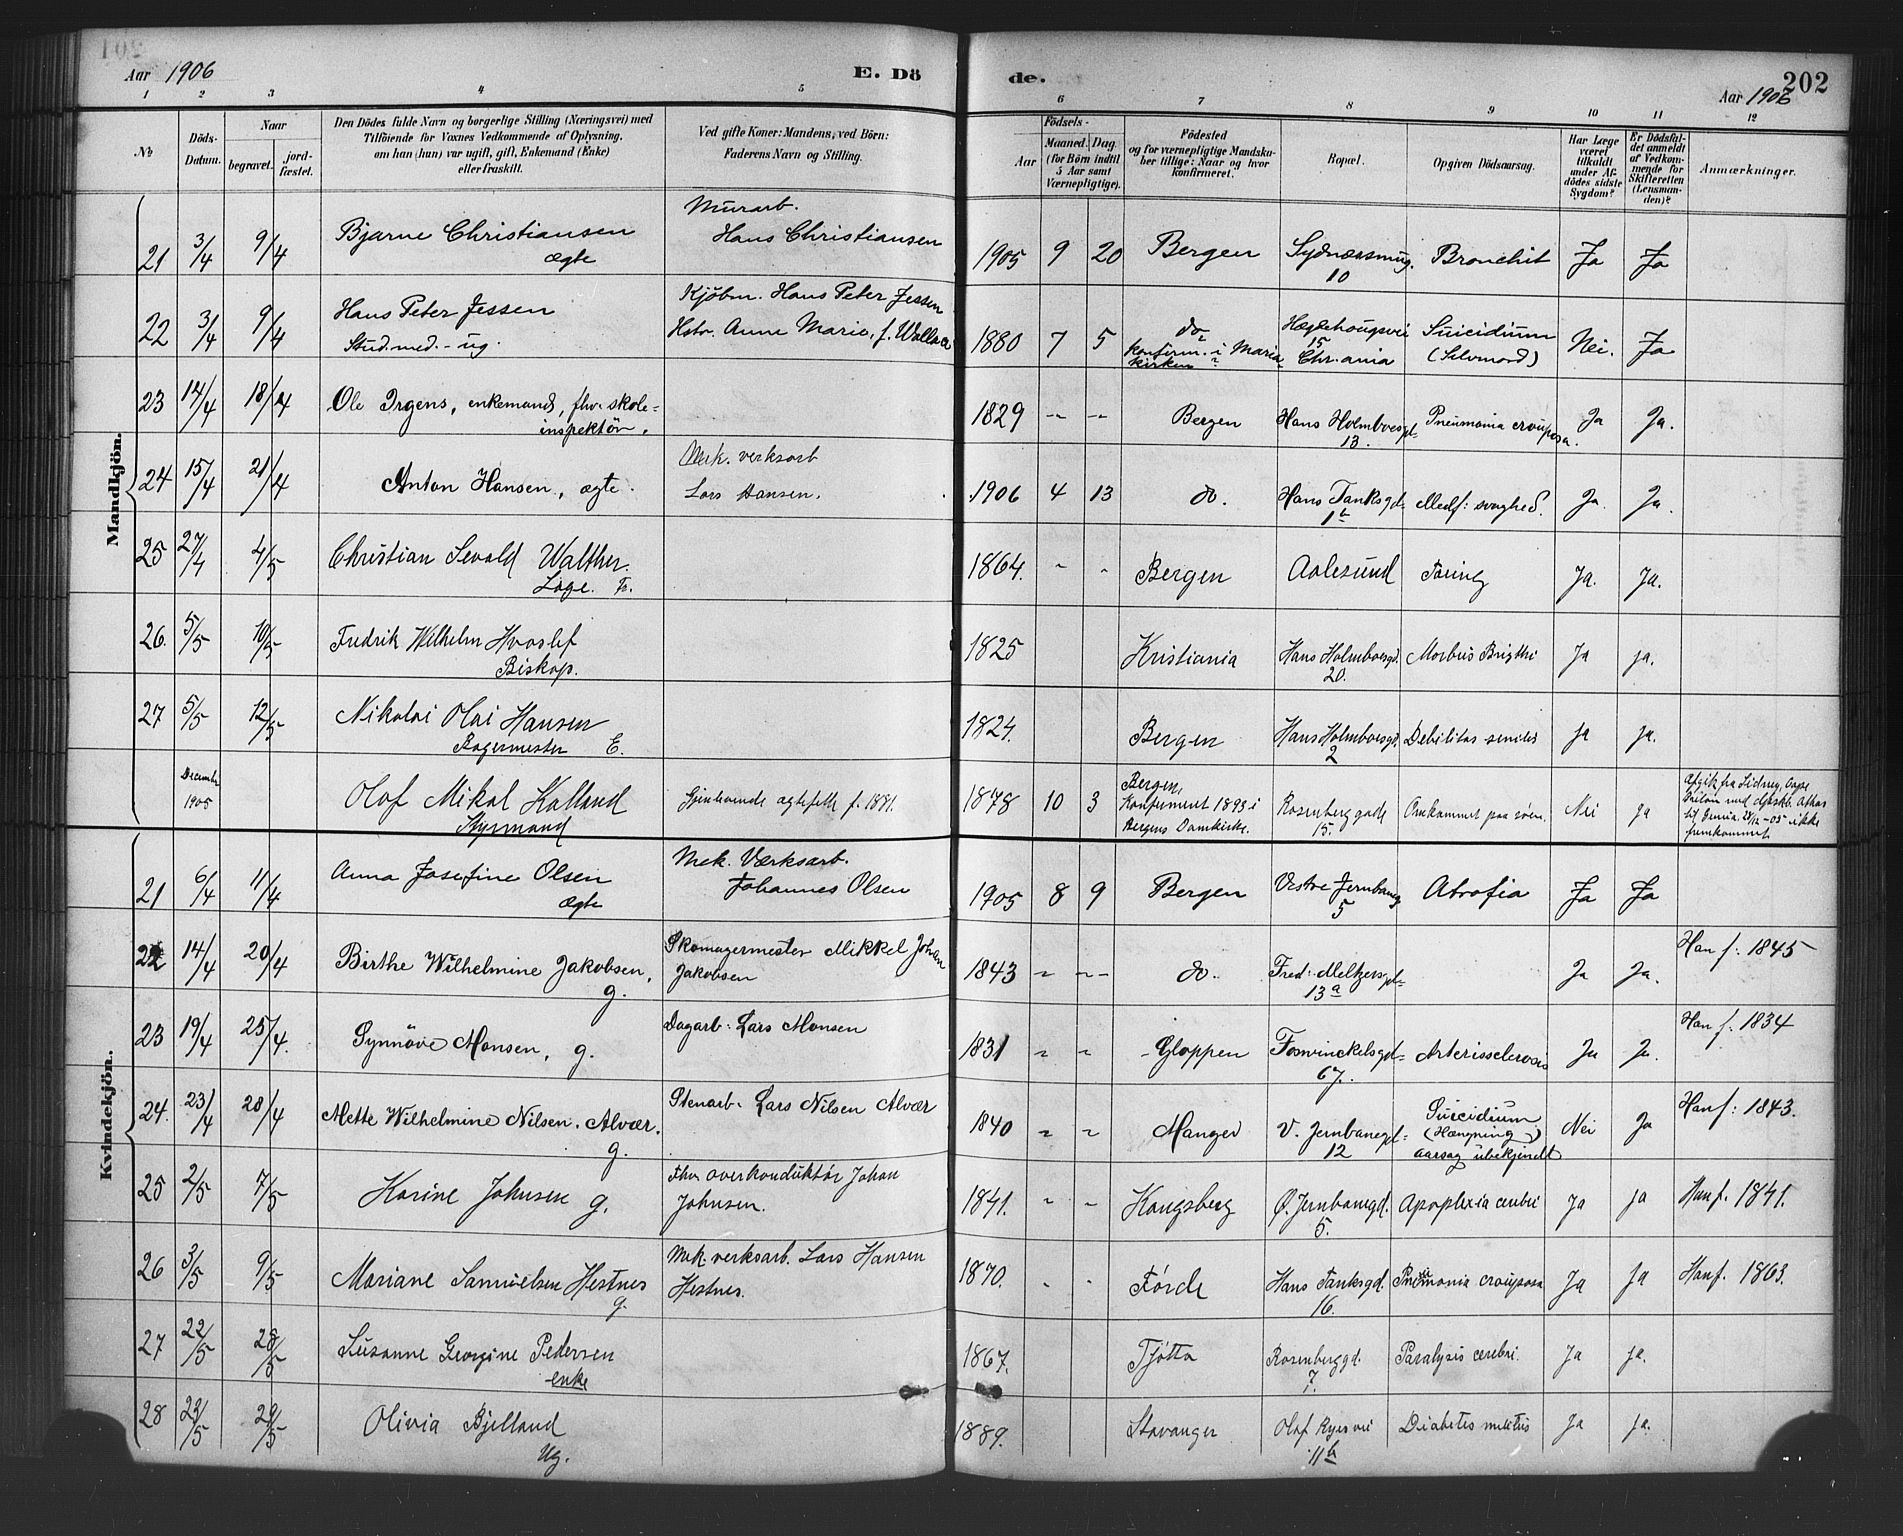 Aar 1906
E. Dö
de.
202
Aar 1906
1 2 3 4 5 6 7 8 9 10 11 12
No
Döds-Datum.
Naar
begravet.
jord-fæstet.
Den Dödes fulde Navn og borgerlige Stilling (Næringsvei) med
Tilföiende for Voxnes Vedkommende af Oplysning,
om han (hun) var ugift, gift, Enkemand (Enke)
eller fraskilt.
Ved gifte Koner: Mandens, ved Börn:
Faderens Navn og Stilling.
Födsels-
Aar
Maaned. Dag.
(for Börn indtil
5 Aar samt
Værnepligtige).
Födested
og for værnepligtige Mandska-
ber tillige: Naar og hvor
konfirmeret.
Bopæl.
Opgiven Dödsaarsag.
Har Læge
været
tilkaldt
under Af-
dödes sidste
Sygdom?
Er Dödsfal-
det anmeldt
af Vedkom-
mende for
Skifteretten
(Lensman-
den)?
Anmærkninger.
Mandkjön.
21 3/4 9/4 Bjarne Christiansen ægte Murarb. Hans Christiansen 1905 9 20 Bergen Sydnæssmug. 10 Bronchit Ja Ja
22 3/4 9/4 Hans Peter Jessen Stud. med. - ug. Kjöbm. Hans Peter Jessen Hstr. Anne Marie, f. Wallace 1880 7 5 do Konfirm. i Maria kirken Hægdehougsvei 15 Chr.ania Suicidium (Selvmord) Nei. Ja
23 14/4 18/4 Ole Irgens, enkemand, fhv. skole-inspektör. 1829 -- -- Bergen Hans Holmboesgd. 13. Pneumonia crouposa. Ja Ja.
24 15/4 21/4 Anton Hansen, ægte. Mek. verksarb Lars Hansen. 1906 4 13 do. Hans Tanksgd. 1b Medf: svaghed. Ja. Ja.
25 27/4 4/5 Christian Sevald Walther. Læge. 1864. - - Bergen Aalesund Tæring Ja. Ja.
26. 5/5 10/5 Fredrik Wilhelm Hvoslef Biskop. 1825 Kristiania Hans Holmboesgd. 20. Morbus Brigthi Ja ja.
27 5/5 12/5 Nikolai Olai Hansen Bagermester E. 1824. Bergen Hans Holmboesgd. 2 Debilitas senilis ja ja.
December 1905 Olof Mikal Kalland Styrmand Gjenlevende ægtefelle f. 1881. 1878 10 3 Bergen, Konfirmeret 1893 i Bergens Domkirke. Rosenberggade 15. Omkommet paa söen. Nei ja
ikke fremkommet
Kvindekjön.
21 6/4 11/4 Anna Josefine Olsen ægte Mek. Værksarb. Johannes Olsen 1905 8 9 Bergen Vestre Jernbaneg 5 Atrofia Ja Ja
22 14/4 20/4 Birthe Wilhelmine Jakobsen, g. Skomagermester Mikkel Johan Jakobsen 1843 - -- do. Fred: Meltzersgd- 13a Ja Ja. Han f: 1845
23 19/4 25/4. Synnöve Monsen, g. Dagarb: Lars Monsen 1831 - - Gloppen Fosvinckelsgd- 67. Arterissclerosis Ja Ja. Han f: 1834
24. 23/4 28/4 Mette Wilhelmine Nilsen Alvær. g. Stenarb: Lars Nilsen Alvær 1840 - - Manger V. Jernbanegd- 12 Suicidium (Hængning) aarsag ubekjendt Nei Ja Han f: 1843.
25 2/5 7/5 Karine Johnsen g. Fhv overkonduktör Johan Johnsen. 1841. - - Kongsberg Ö. Jernbanegd. 5. Apoplexia cerebri Ja ja Han f. 1841.
26 3/5 9/5 Mariane Samuelsen Hestnes g. Mek. verksarb. Lars Hansen Hestnes. 1870. - - Förde Hans Tanksgd. 16. Pneumonia crouposa Ja ja Han f. 1863.
27 22/5 28/5 Susanne Georgine Pedersen enke 1867. Tjötta Rosenberggd. 7. Paralysis cerebri. Ja ja.
28 23/5 29/5 Olivia Bjelland Ug. 1889. Stavanger Olaf Ryes vei 11b Diabetes melitus Ja ja.